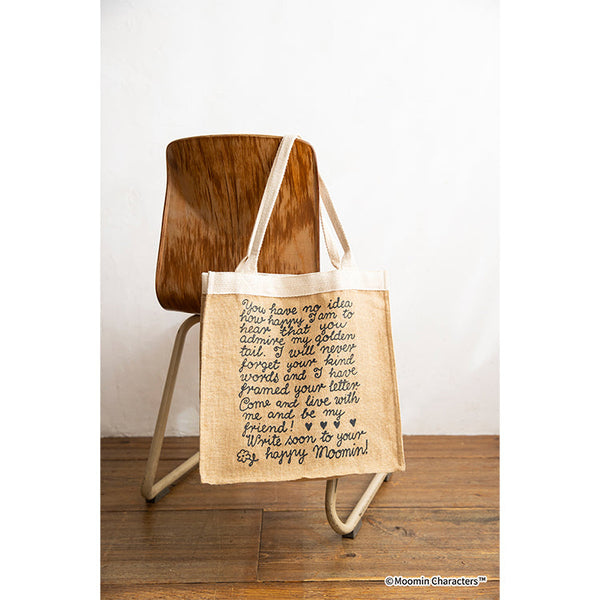 You have no idea
how happy I am to
hear that you
admire my golden
tail. I will never
forget your kind
words and I have
framed your letter
Come and live with
me and be my
friend! ♥ ♥ ♥ ♥
Write soon to your
happy Moomin!
©Moomin Characters™